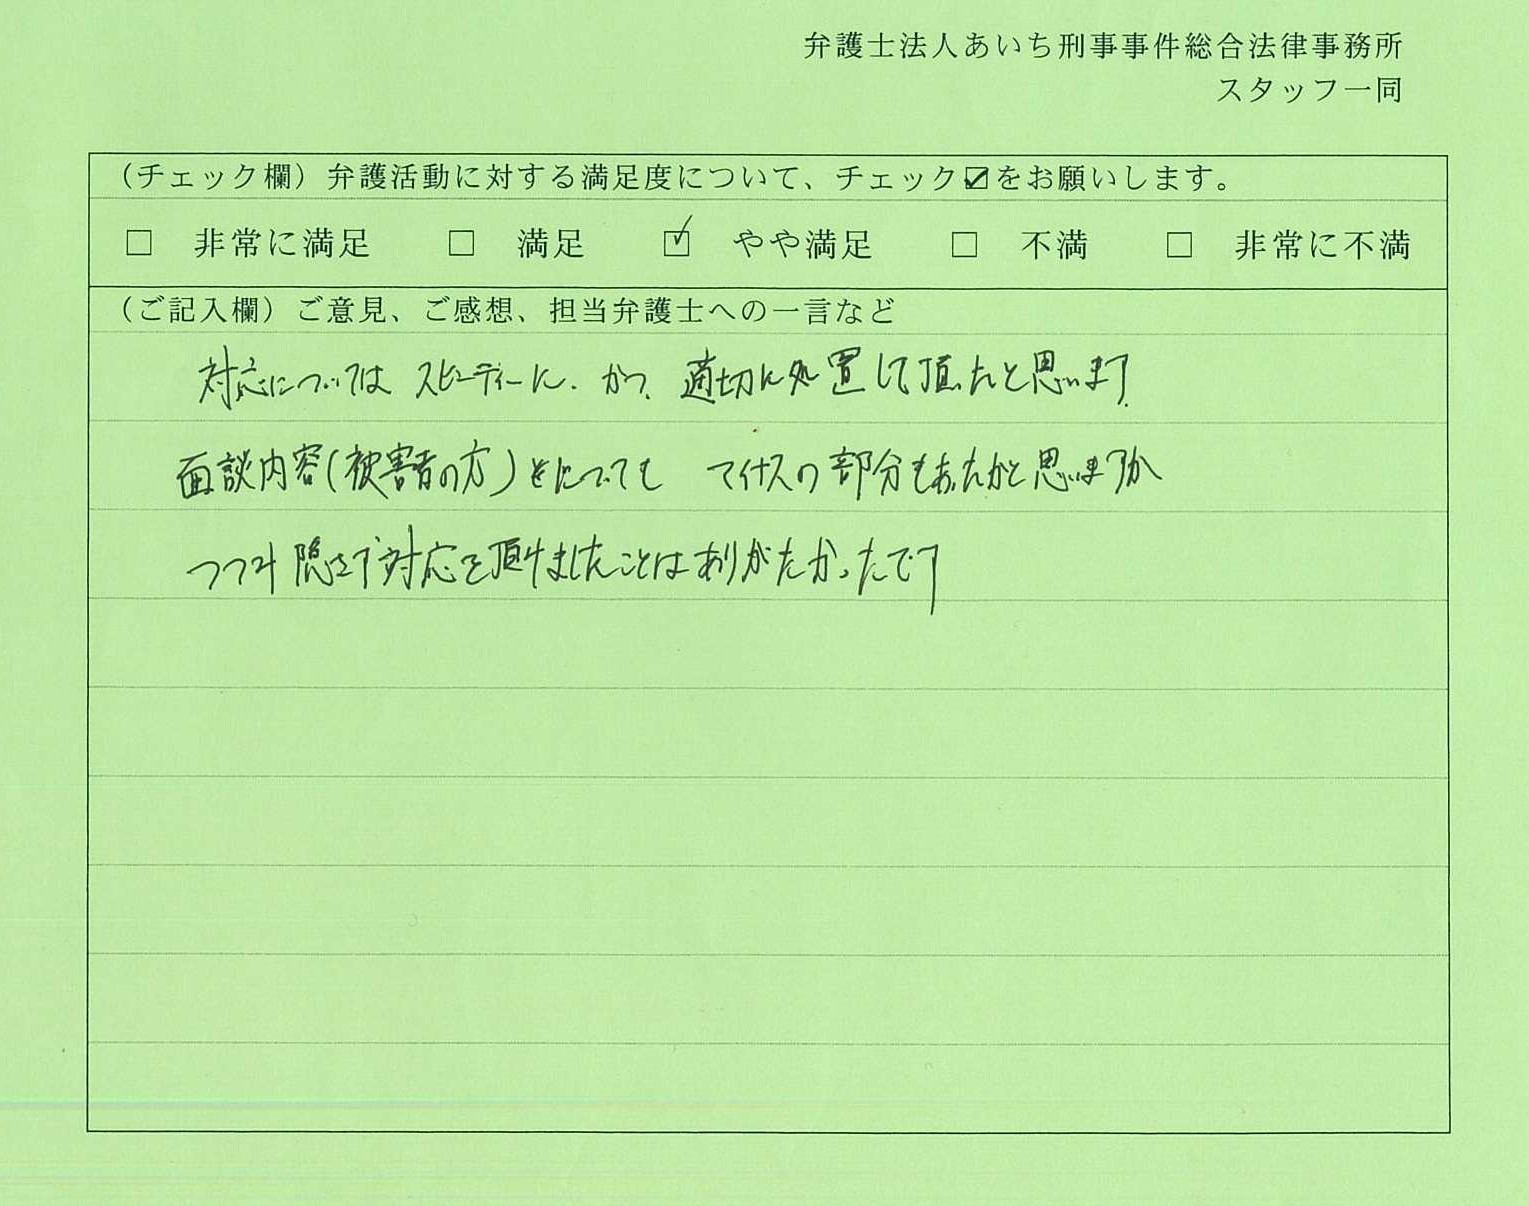 弁護士法人あいち刑事事件総合法律事務所
スタッフ一同
（チェック欄）弁護活動に対する満足度について、チェック☑をお願いします。
□ 非常に満足 □ 満足 ☑ やや満足 □ 不満 □ 非常に不満
（ご記入欄）ご意見、ご感想、担当弁護士への一言など
対応についてはスピーディーに、かつ、適切に処置して頂いたと思います。
面談内容(被害者の方)につても マイナスの部分もあったかと思いますが
つつみ隠さず対応を頂けましたことはありがたかったです